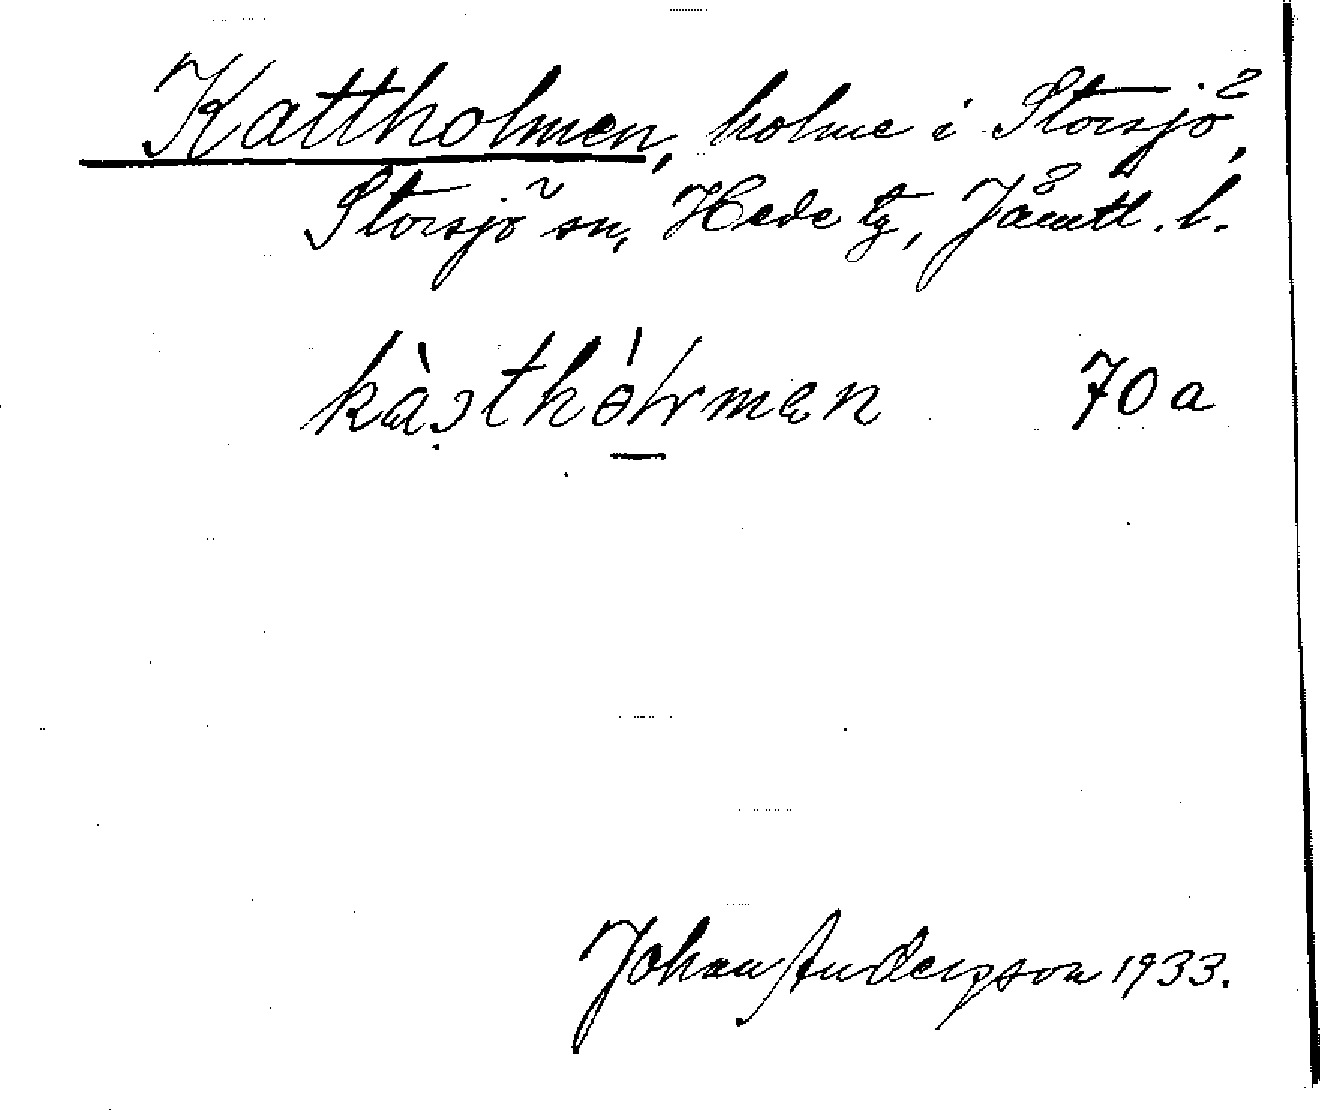 Kattholmen, holme i Storsjö,
Storsjö sn, Hede tg, Jämtl. l.
70a
Johan Anderson 1933.